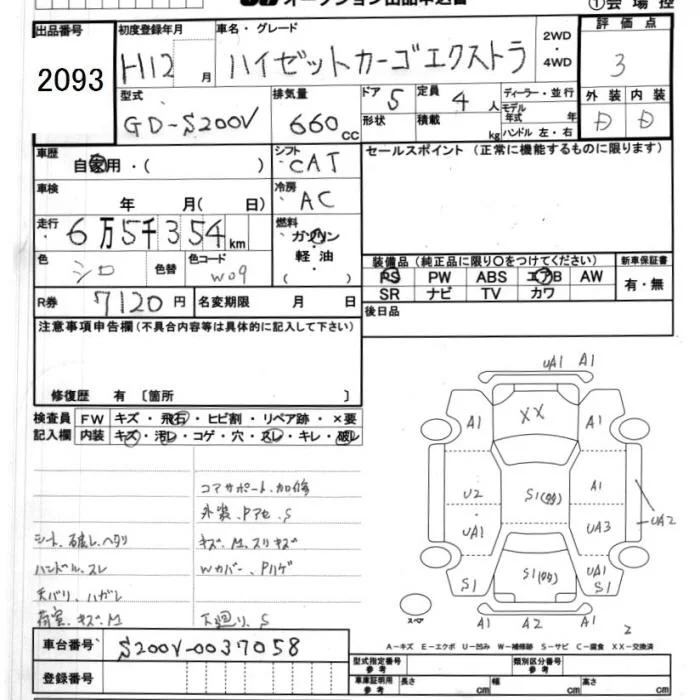 オークション出品申込書
①会場控
出品番号
2093
初度登録年月
H12 月
車名・グレード
ハイゼットカーゴエクストラ
2WD
・
4WD
評価点
3
型式
GD-S200V
排気量
660 cc
ドア 5
定員 4 人
形状
積載 kg
ディーラー・並行
モデル年式 年
ハンドル 左・右
外装 内装
D D
車歴
自家用・( )
シフト
CAT
セールスポイント (正常に機能するものに限ります)
車検
年 月( 日)
冷房
AC
走行
6万5千354km
燃料
ガソリン
軽油
( )
色
シロ
色替
色コード
W09
装備品 (純正品に限り○をつけてください)
新車保証書
PS PW ABS エアB AW
有・無
SR ナビ TV カワ
R券 7120円
名変期限 月 日
後日品
注意事項申告欄(不具合内容等は具体的に記入して下さい)
修復歴 有 〔箇所 〕
検査員記入欄
FW キズ・飛石・ヒビ割・リペア跡・×要
内装 キズ・汚レ・コゲ・穴・スレ・キレ・破レ
コアサポート、加修
外装、Pアセ、S
シート、破レ、ヘタリ
キズ、M、スリキズ
ハンドル、スレ
Wカバー、Pハゲ
天バリ、ハガレ
荷室、キズ、M
下廻り、S
UA1 A1
A1 XX A1
U2 S1 A1
UA1 UA3 UA2
S1 S1 UA1 S1
スペア
A1 A2 A1
2
A-キズ E-エクボ U-凹み W-補修跡 S-サビ C-腐食 XX-交換済
車台番号 S200V-0037058
登録番号
型式指定番号
参考
類別区分番号
参考
車庫証明用
参考
長さ cm 幅 cm 高さ cm